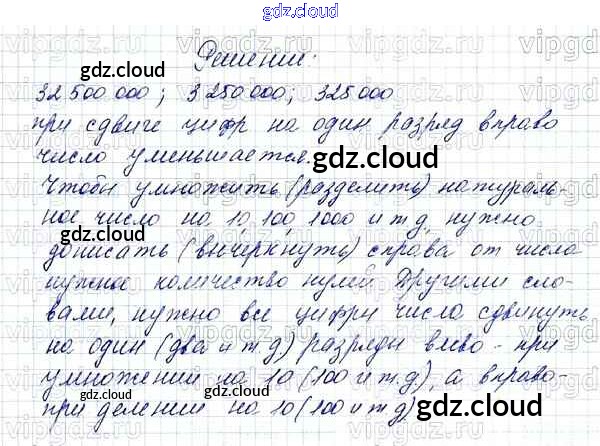 gdz.cloud
Решение:
32 500 000; 3 250 000; 325 000
при сдвиге цифр на один разряд вправо
число уменьшается.
Чтобы умножить (разделить) натураль-
ное число на 10, 100, 1000 и т д, нужно
дописать (вычеркнуть) справа от числа
нужное количество нулей. Другими сло-
вами, нужно все цифры числа сдвинуть
на один (два и т д) разряды влево - при
умножении на 10 (100 и т.д), а вправо-
при делении на 10 (100 и т д)
gdz.cloud
gdz.cloud
gdz.cloud
gdz.cloud
gdz.cloud
gdz.cloud
gdz.cloud